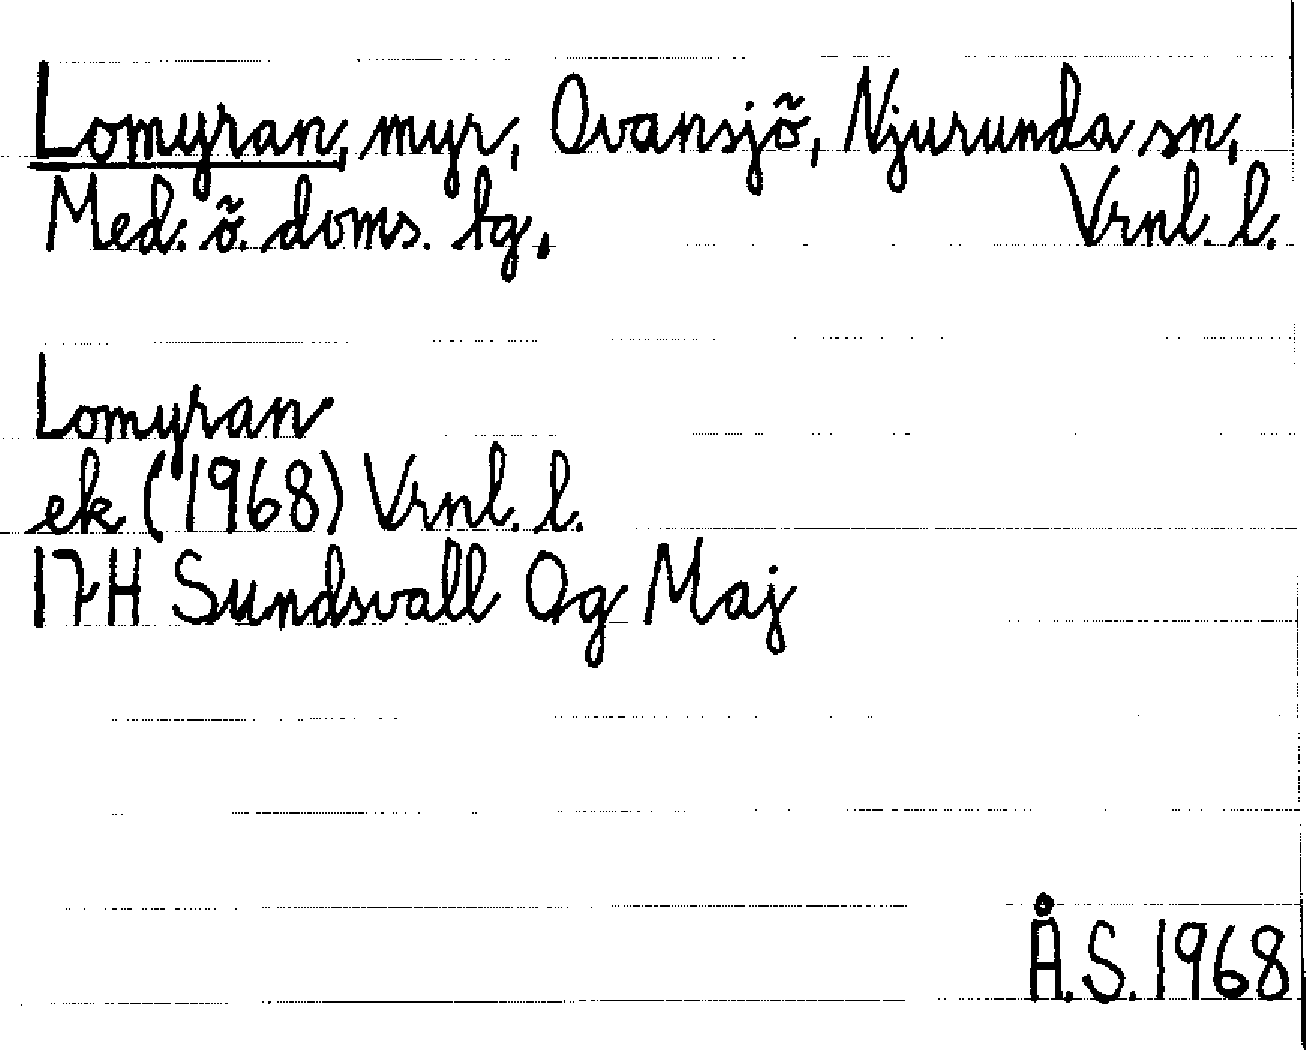 Lomyran, myr, Ovansjõ, Njurunda sn,
Med. õ. doms. tg. Vrnl. l.
Lomyran
ek (1968) Vrnl. l.
17H Sundsvall Og Maj
Å.S. 1968